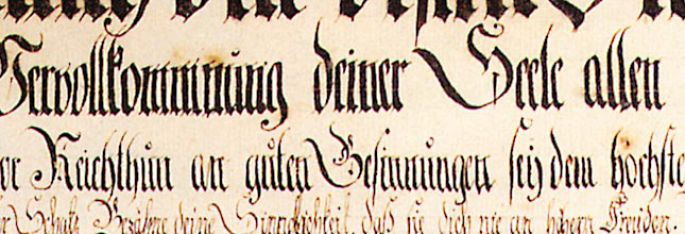 Vervollkommnung deiner Seele allen
or Reichthum an guten Gesinnungen sey dein höchste
Schatz Bezähme deine Sinnlichkeit, daß sie dich nie an höhern Freuden.